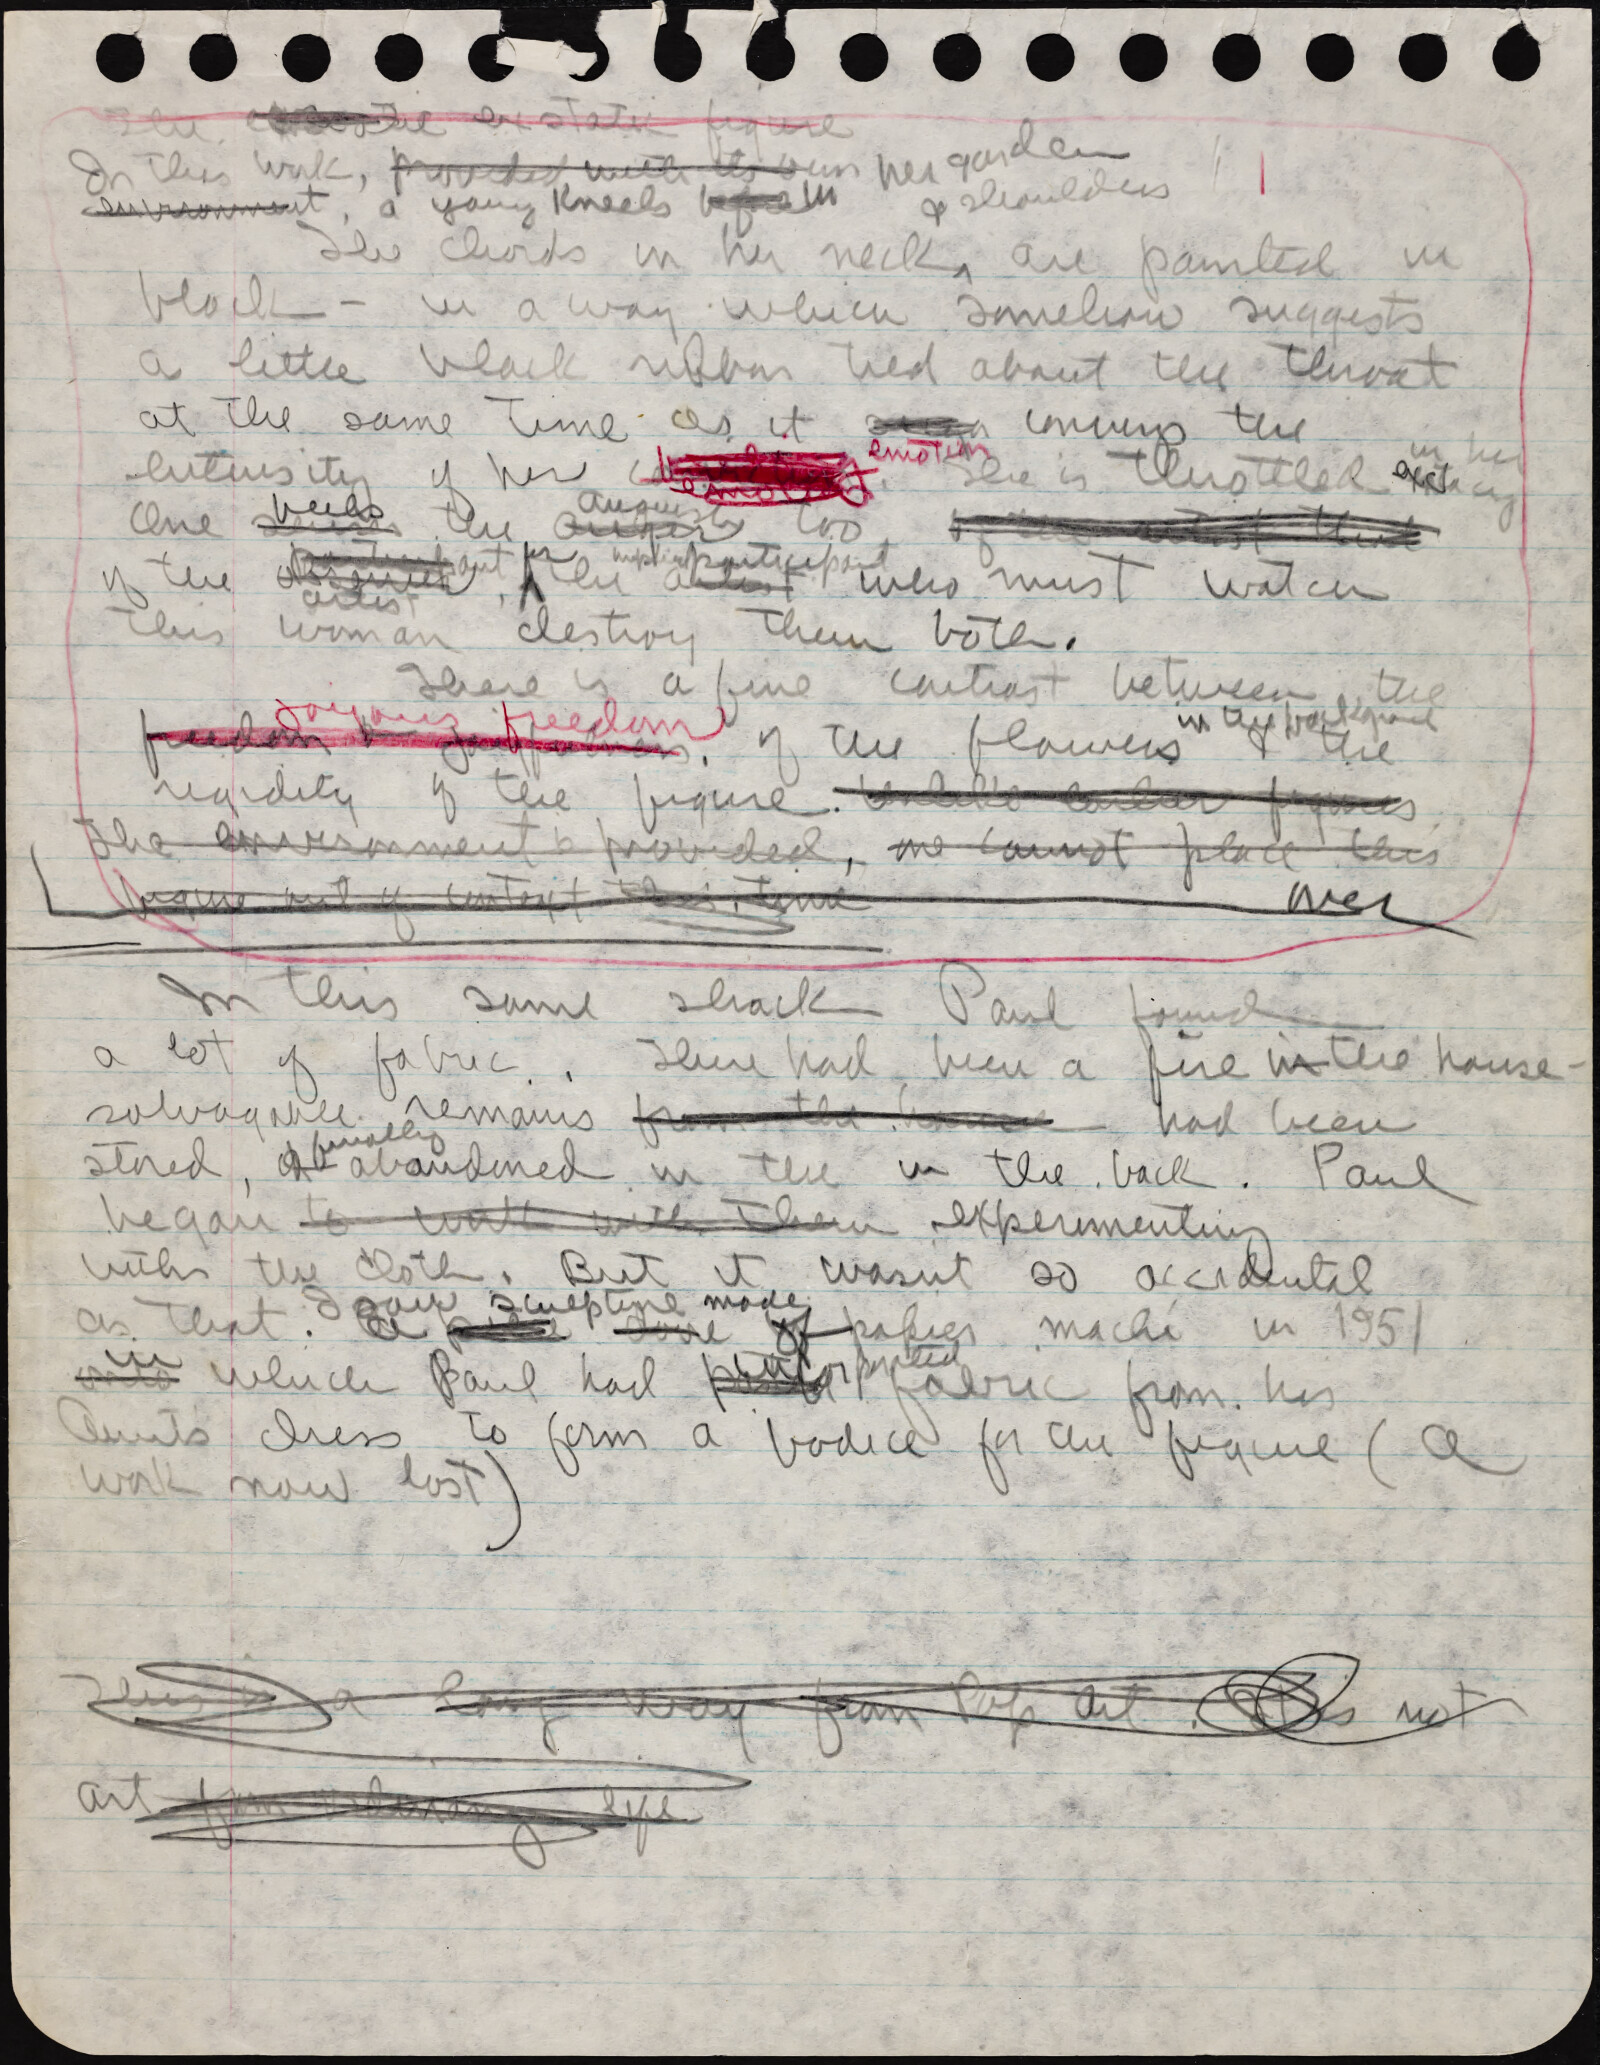 The exstatic figure
In this work, provided with its own her garden
environment, a young kneels before in & shoulders
The chords in her neck, are painted in
black - in a way which somehow suggests
a little black ribbon tied about the throat
at the same time as it conveys the
intensity of her emotion. She is throttled in her extacy
One feels the anguish too, of the artist
of the participant, or the implied participant who must watch
artist
this woman destroy them both.
There is a fine contrast between the
joyous freedom
freedom & joyfulness, of the flowers in the background & the
regidity of the figure. Unlike earlier figures
The environment provided, one cannot place this
figure out of context this time over
In this same shack Paul found
a lot of fabric. There had been a fire in the house -
salvagable remains from the house had been
stored, & finally abandoned in the in the back. Paul
began to work with them experimenting
with the cloth. But it wasnt so accidental
as that. I saw sculpture made of papier maché in 1951
onto in which Paul had incorporated fabric from his
Aunts dress to form a bodice for the figure (a
work now lost)
This is a long way from Pop Art. It is not
art from ordinary life